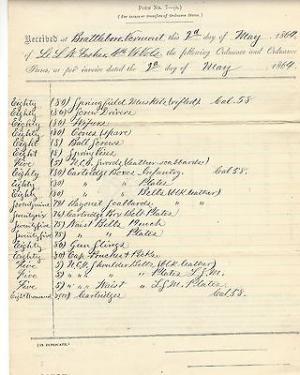 (For invoice of transfers of Ordnance Stores.)
Received at Brattleboro Vermont this 2d day of May 1864,
of the following Ordnance and Ordnance
Stores, as per invoice dated the 2d day of May 1864.
Eighty (80) Springfield Muskets (rifled) Cal. 58
Eighty (80) Screw Drivers
Eighty (80) Wipers
Eighty (80) Cones (spare)
Eight (8) Ball Screws
Eight (8) Spring Vices
Five (5) N.C.O. Swords (leather scabbards)
Eighty (80) Cartridge Boxes Infantry Cal 58.
Eighty (80) " " Plates
Eighty (80) " " Belts (blk leather)
(79) Bayonet Scabbards " "
(76) Cartridge Box Belt Plates
Seventyfive (75) Waist Belts
Seventyfive (75) " " Plates
Eighty (80) Gun Slings
Eighty (80) Cap Pouches & Picks
Five (5) N.C.O. Shoulder Belts (blk leather)
Five (5) " " " Plates
Five (5) " " Waist "
Cartridges Cal 58.
(IN DUPLICATE.)